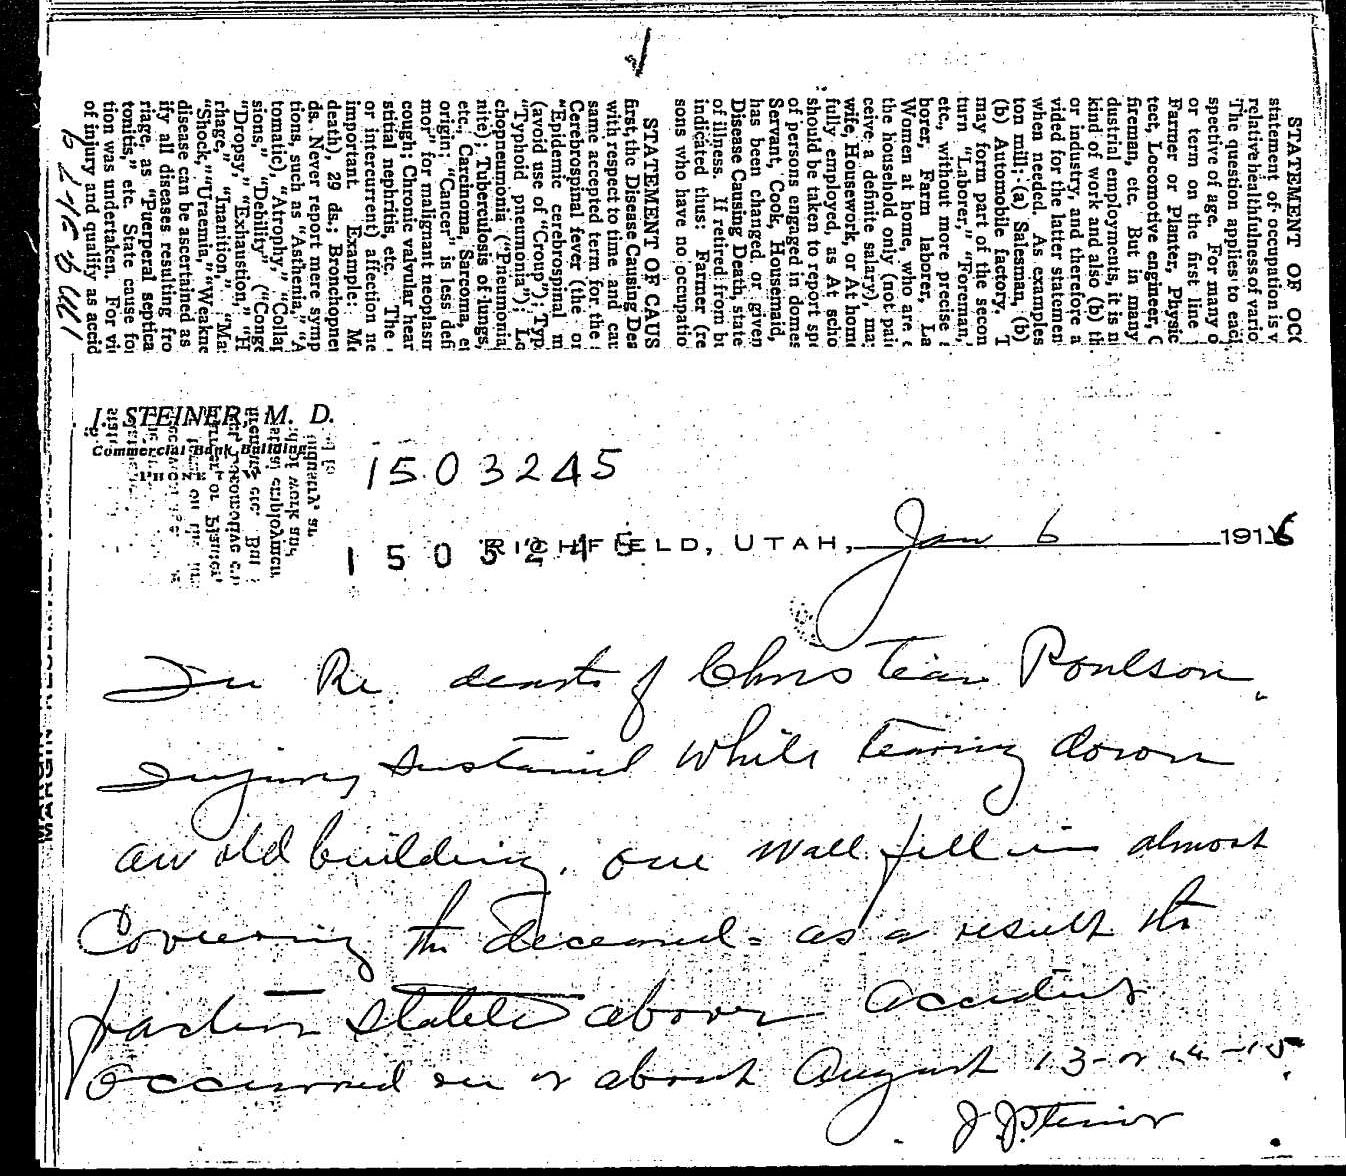 STATEMENT OF OCC
statement of occupation is v
relative healthfulness of vario
The question applies to each
spective of age. For many o
or term on the first line
Farmer or Planter, Physic
tect, Locomotive engineer, C
fireman, etc. But in many
dustrial employments, it is n
kind of work and also (b) th
or industry, and therefore a
vided for the latter statemen
when needed. As examples
ton mill; (a) Salesman, (b)
(b) Automobile factory. T
may form part of the secon
turn "Laborer," "Foreman,
etc., without more precise
borer, Farm laborer, La
Women at home, who are
the household only (not pai
ceive a definite salary), ma
wife, Housework, or At home
fully employed, as At scho
should be taken to report spe
of persons engaged in domes
Servant, Cook, Housemaid,
has been changed or given
Disease Causing Death, state
of illness. If retired from bu
indicated thus: Farmer (re
sons who have no occupatio
STATEMENT OF CAUS
first, the Disease Causing Dea
with respect to time and cau
same accepted term for the
Cerebrospinal fever (the on
"Epidemic cerebrospinal m
(avoid use of "Croup"); Typ
"Typhoid pneumonia"); Lo
chopneumonia ("Pneumonia
nite); Tuberculosis of lungs,
etc., Carcinoma, Sarcoma, e
origin; "Cancer" is less def
mor" for malignant neoplasm
cough; Chronic valvular hear
stitial nephritis, etc. The
or intercurrent) affection ne
important. Example: Me
death), 29 ds.; Bronchopneu
ds. Never report mere symp
tions, such as "Asthenia," "A
tomatic), "Atrophy," "Collap
sions," "Debility" ("Conge
"Dropsy," "Exhaustion," "H
rhage," "Inanition," "Ma
"Shock," "Uraemia," "Weakne
disease can be ascertained as
ify all diseases resulting fro
riage, as "Puerperal septica
tonitis," etc. State cause fo
tion was undertaken. For vi
of injury and qualify as accid
J. STEINER M. D.
Commercial Bank Building
1503245
1503245
RICHFIELD, UTAH, Jan 6 1916
In Re. death of Christian Poulson.
Injury sustained while tearing down
an old building. one wall fell in almost
Covering the deceased - as a result the
fraction stated above accident
Occurred on or about August 13 - or 14 - 15.
J. Steiner